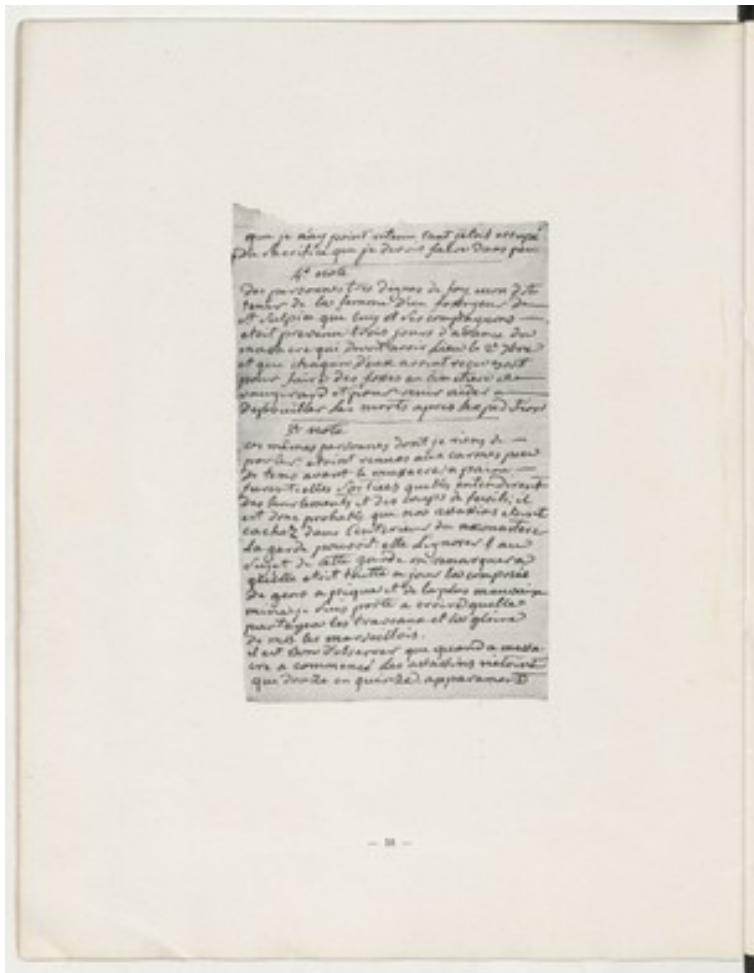 que je n'ay point retenu tant j'etois occupé
du sacrifice que je devois faire dans peu
4e note
des personnes tres dignes de foy mon dit
tenir de la femme d'un fossoyeur de
St Sulpice que luy et ses compagnons
etoit prevenu trois jours d'avance du
massacre qui devoit avoir lieu le 2e 7bre
et que chaqun d'eux avoit reçu
pour faire des fosses au cimetiere de
vaugirard et pour venir aider a
depouiller les morts apres l'expedition
5e note
ces mêmes personnes dont je viens de
parler etoient venues aux carmes peu
de tems avant le massacre a peine
furent elles sorties quelles entendirent
des hurlements et des coups de fusils; il
est donc probable que nos assassins etoient
cachez dans l'interieur du monastere
la garde pouvoit elle l'ignorer! au
sujet de cette garde on remarquera
qu'elle etoit toutte ce jour la composée
de gens a pique et de la plus mauvaise
mine je suis porté a croire quelle
partagea les travaux et la gloire
de mrs les marseillois.
il est bon d'observer que quand le massa
cre a commencé les assassins n'etoient
que douze ou quinze. apparament
— 38 —